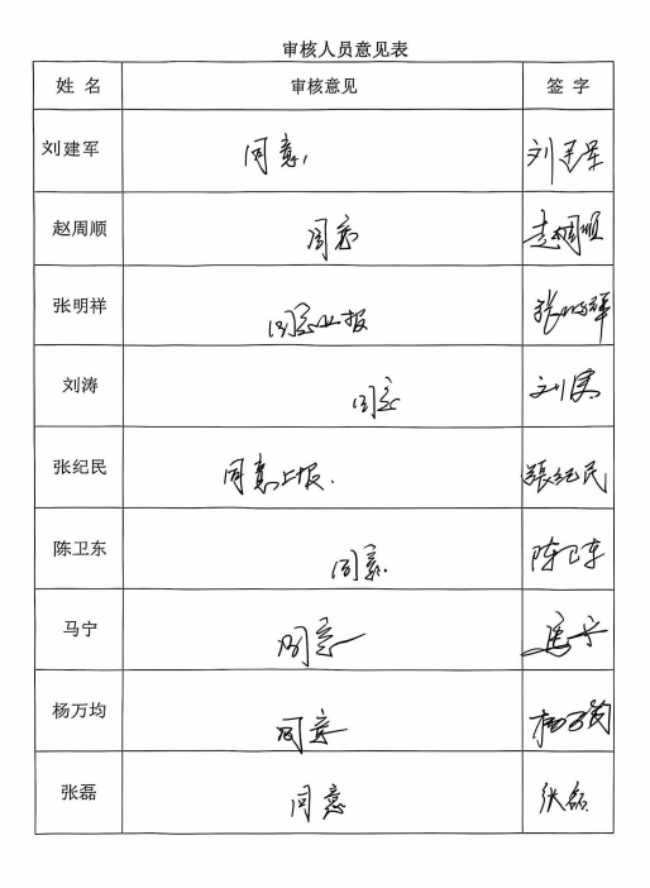 审核人员意见表
姓名 审核意见 签字
刘建军 同意, 刘建军
赵周顺 同意 赵周顺
张明祥 同意上报 张明祥
刘涛 同意 刘涛
张纪民 同意上报. 張纪民
陈卫东 同意. 陈卫东
马宁 同意 马宁
杨万均 同意 杨万均
张磊 同意 张磊